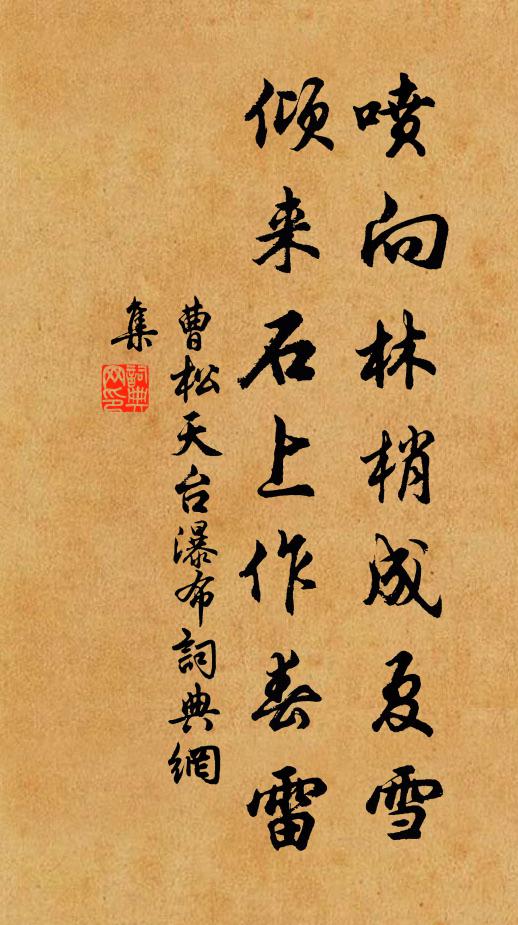 喷向林梢成夏雪
倾来石上作春雷
曹松天台瀑布詞典網
集
詞典
网印